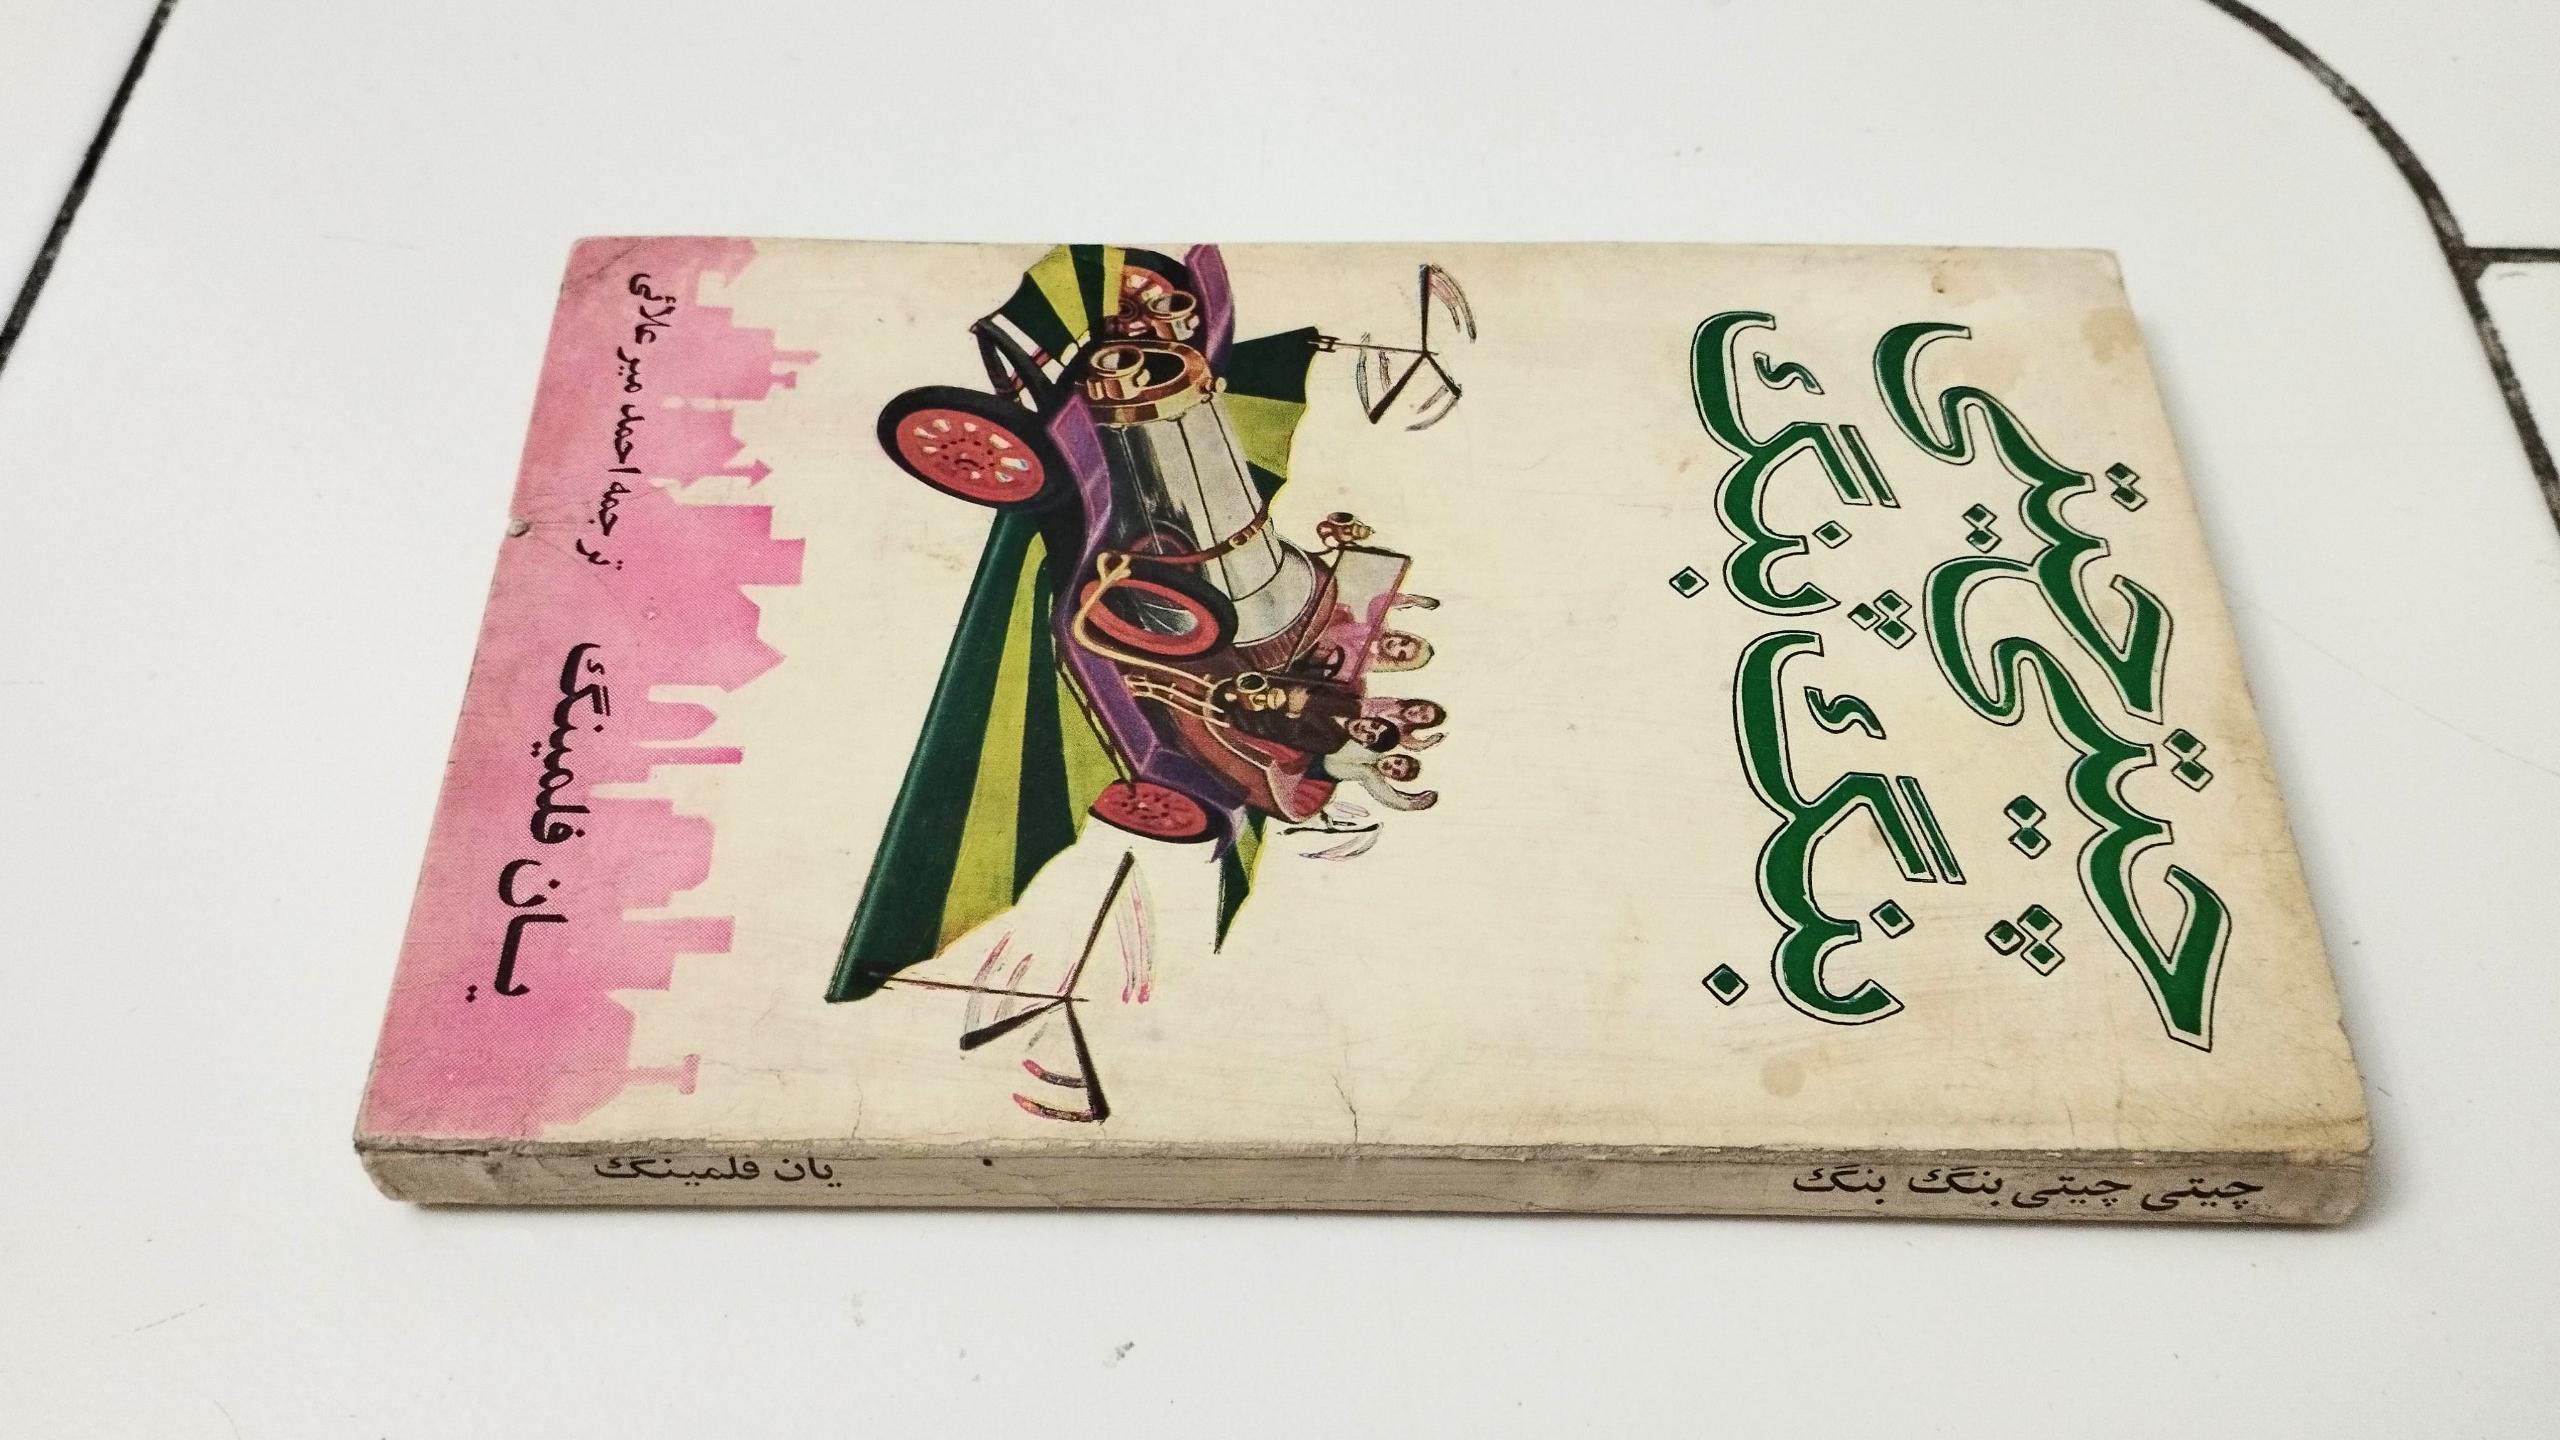 چیتی چیتی
بنگ بنگ
یان فلمینگ
ترجمه احمد میرعلائی
چیتی چیتی بنگ بنگ
یان فلمینگ